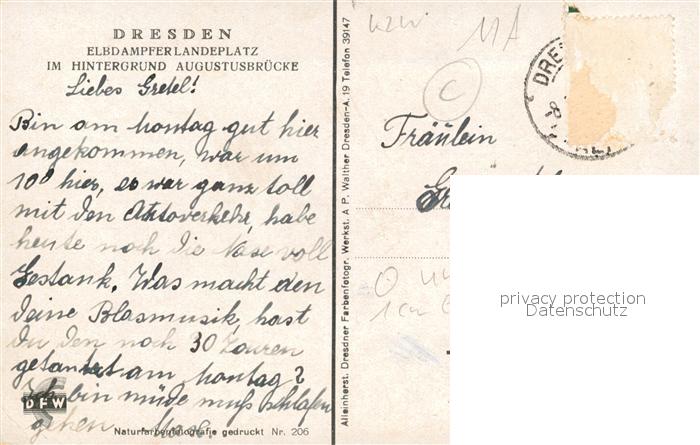 DRESDEN
ELBDAMPFERLANDEPLATZ
IM HINTERGRUND AUGUSTUSBRÜCKE
Liebes Gretel!
Bin am Montag gut hier
angekommen, war um
10⁰ hier, es war ganz toll
mit den Autoverkehr, habe
heute noch die Nase voll
Gestank. Was macht den
deine Blasmusik, hast
du den noch 30 Touren
getanzt am Montag?
Ich bin müde muß schlafen
gehen
DFW
Naturfarbenfotografie gedruckt Nr. 206
Alleinherst. Dresdner Farbenfotogr. Werkst. A P. Walther Dresden-A. 19 Telefon 39147
11A
C
DRE
Fräulein
privacy protection
Datenschutz